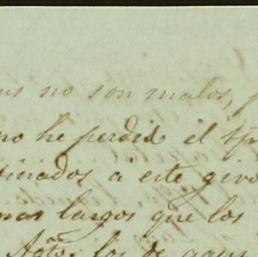 no son malos,
no he perdid el
tinados a este giro
mas largos que los
los de aqui